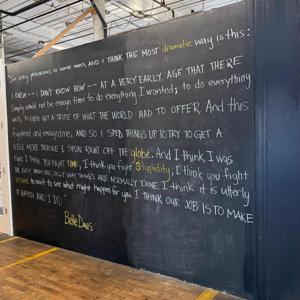 "I'm very precocious, in some ways, and I think the most dramatic way is this:
I KNEW -- I DON'T KNOW HOW -- AT A VERY EARLY AGE THAT THERE
Simply would not be enough time to do everything I wanted; to do everything
to even get a taste of what the world had to offer. And this
frightened and energized me, AND SO I SPED THINGS UP TO TRY TO GET A
LITTLE MORE BEFORE I SPUN RIGHT OFF THE globe. And I think I was
I THINK YOU FIGHT TIME; I think you fight Stupidity; I think you fight
THE EASY, silly WAY THINGS ARE NORMALLY DONE. I think it is utterly
to wait to see what might happen for you. I THINK OUR JOB IS TO MAKE
IT HAPPEN AND I DID"
Bette Davis